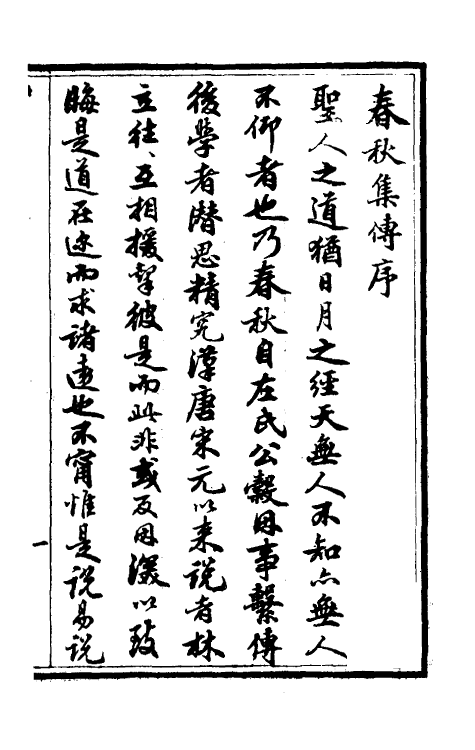 春秋集傳序
聖人之道猶日月之經天無人不知亦無人
不仰者也乃春秋自左氏公縠因事繫傳
後學者潜思精究漢唐宋元以来説者林
立往〻互相援撃彼是而此非或反因議以致
晦是道在迩而求諸遠也不寧惟是説易説
一